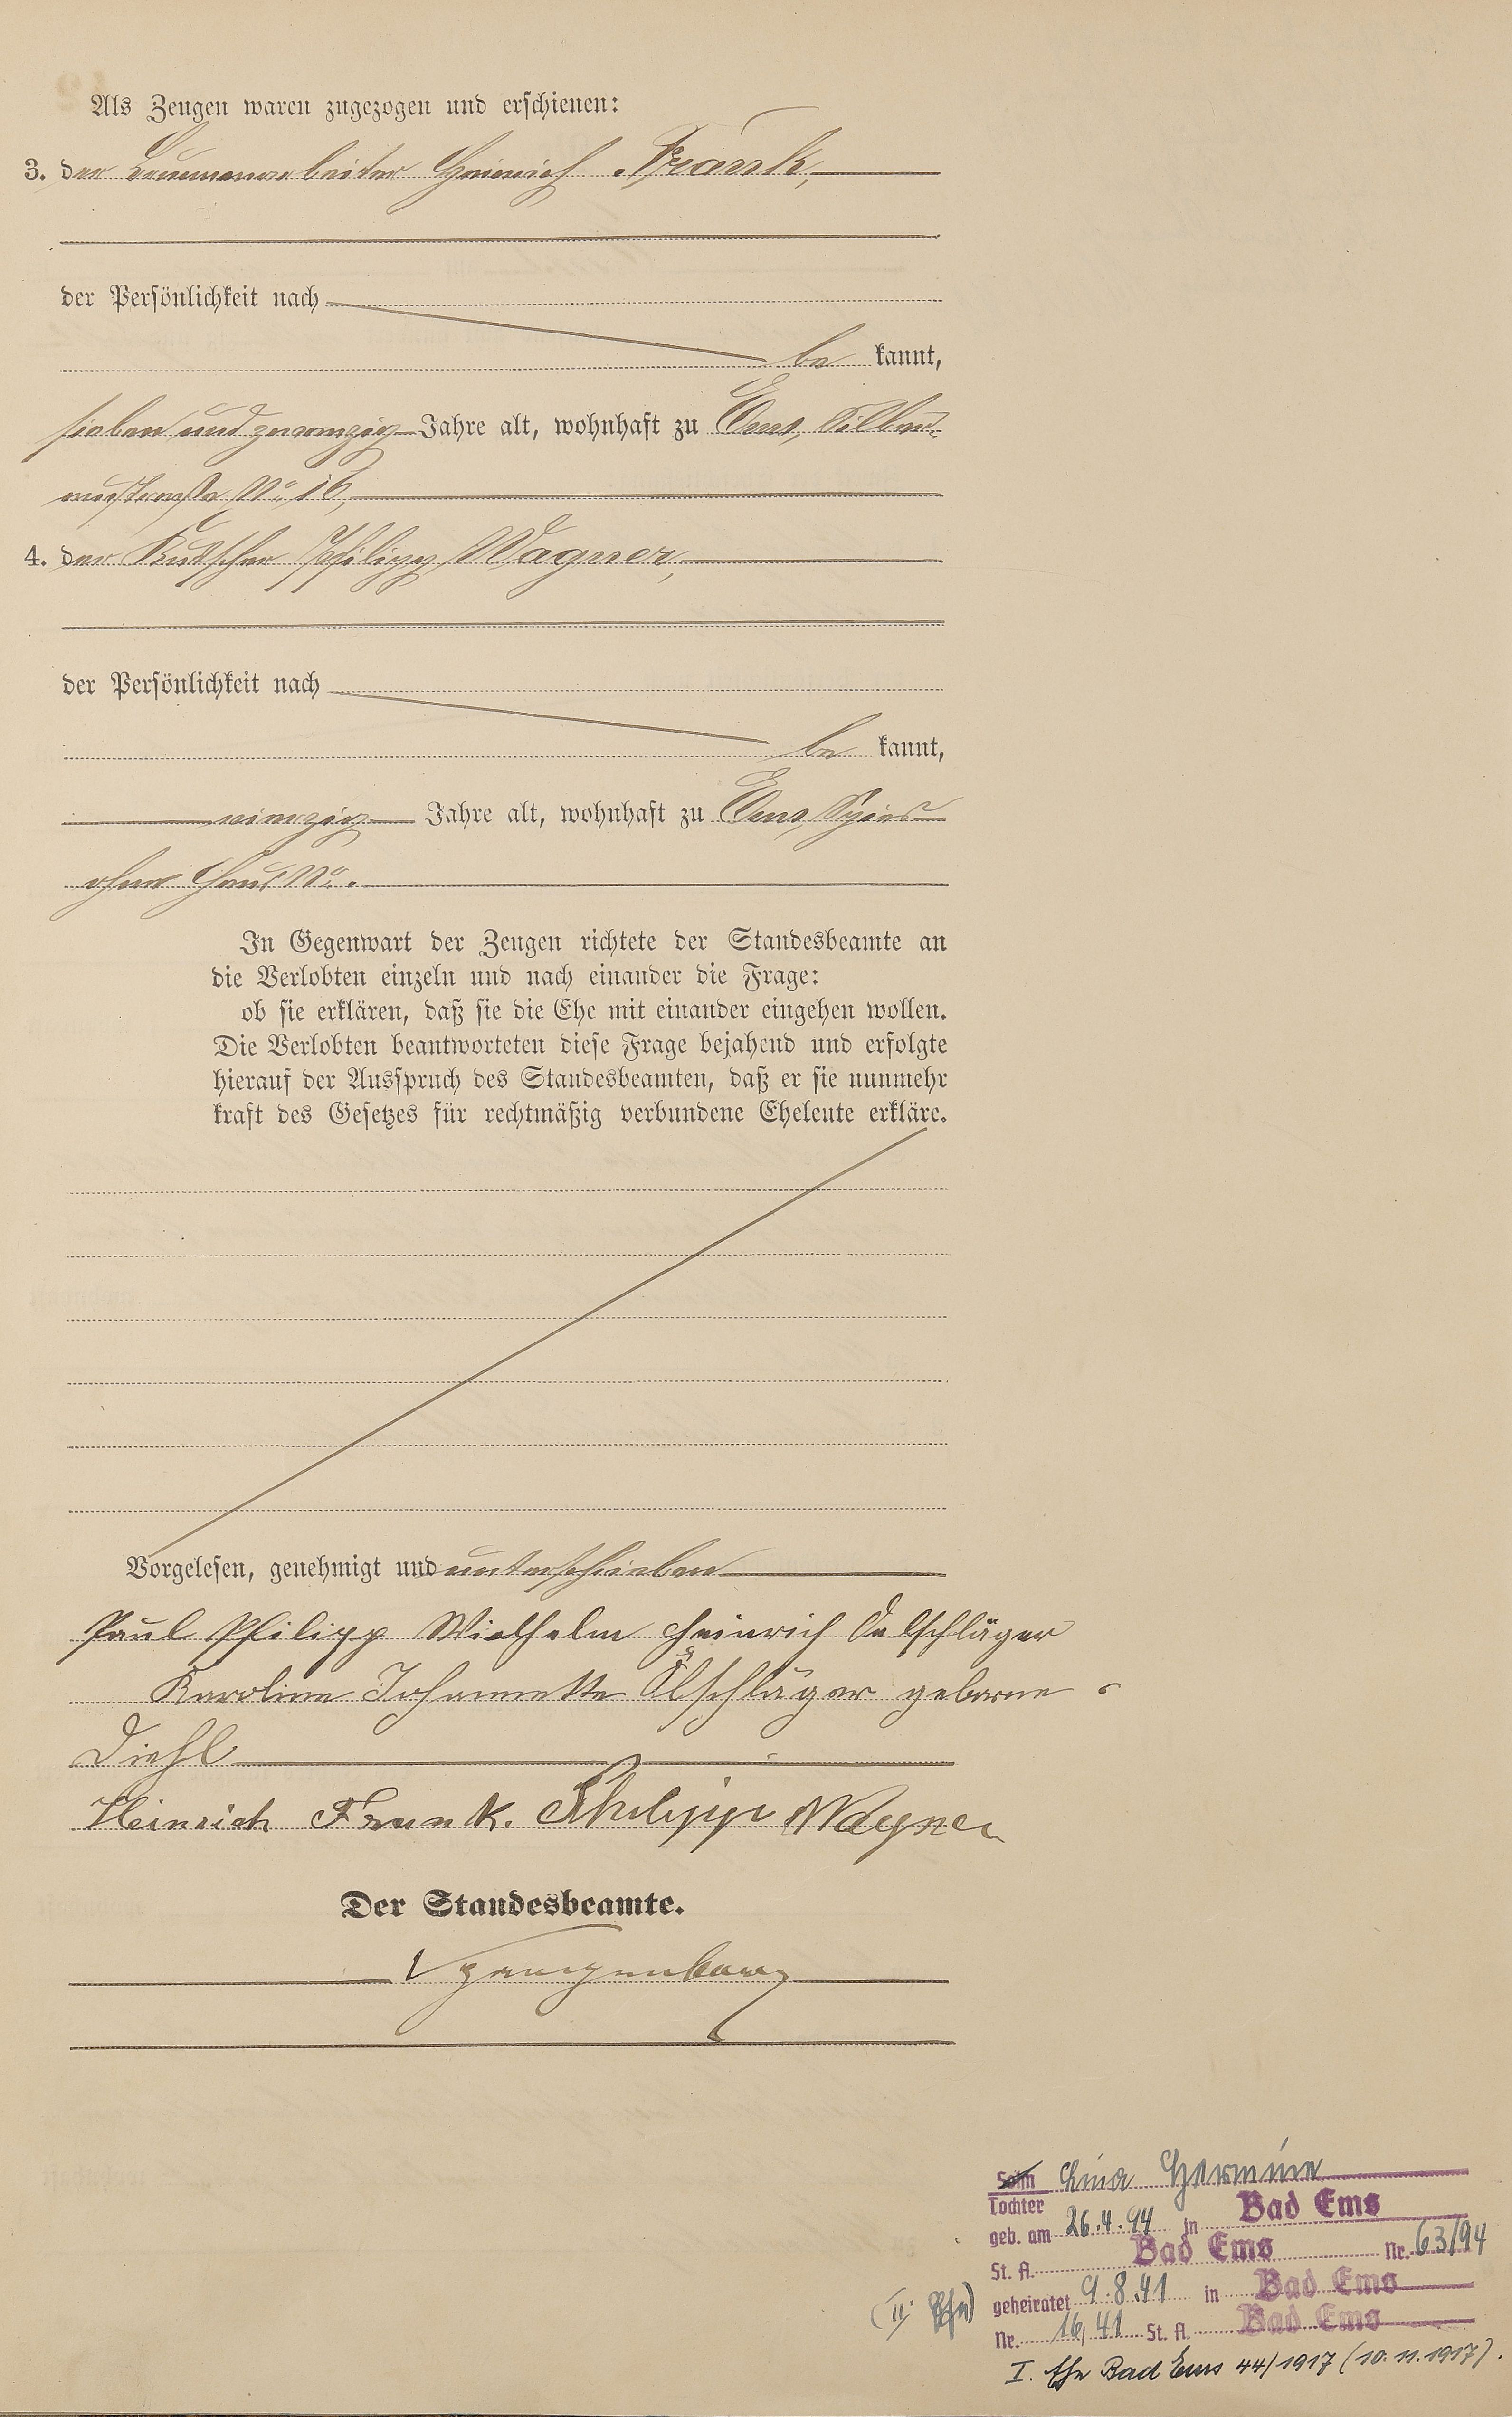 Als Zeugen waren zugezogen und erschienen:
3. der Brunnenarbeiter Heinrich Frank,
der Persönlichkeit nach
be kannt,
sieben und zwanzig Jahre alt, wohnhaft zu Ems, Silbau-
erstraße No. 16,
4. der Kutscher Philipp Wagner,
der Persönlichkeit nach
be kannt,
Jahre alt, wohnhaft zu Ems, Spies
ohne Haus No.
In Gegenwart der Zeugen richtete der Standesbeamte an
die Verlobten einzeln und nach einander die Frage:
ob sie erklären, daß sie die Ehe mit einander eingehen wollen.
Die Verlobten beantworteten diese Frage bejahend und erfolgte
hierauf der Ausspruch des Standesbeamten, daß er sie nunmehr
kraft des Gesetzes für rechtmäßig verbundene Eheleute erkläre.
Vorgelesen, genehmigt und unterschrieben
Paul Philipp Wielhelm Heinrich Oelschläger
Karoline Johannette Ölschläger geborne
Diehl
Heinrich Frank. Philipp Wagner
Der Standesbeamte.
Spangenberg
Sohn Lina Hermine
Tochter
geb. am 26.4.94 in Bad Ems
St. A. Bad Ems Nr. 63/94
(II. Ehe) geheiratet 9.8.41 in Bad Ems
Nr. 16/41 St. A. Bad Ems
I. Ehe Bad Ems 44/1917 (10.11.1917).